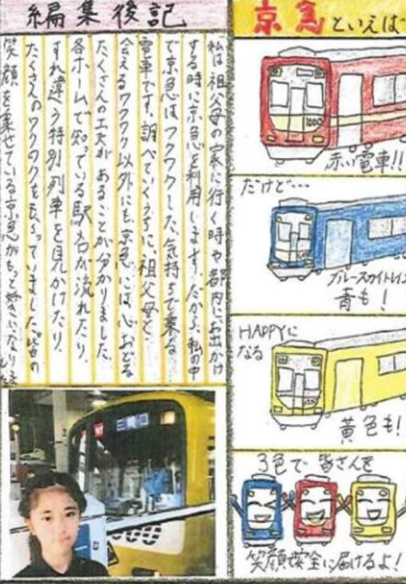 編集後記
私は祖父母の家に行く時や都内にお出かけ
する時に京急を利用します。だから、私の中
で京急はワクワクした気持ちで乗る
電車です。調べていくうちに、祖父母と
会えるワクワク以外にも京急には心おどる
たくさんの工夫があることが分かりました。
各ホームで知っている駅名が流れたり、
すれ違う特別列車を見かけたり、
たくさんのワクワクをもらっていました。皆の
笑顔を乗せている京急がもっと好きになりました
三崎口
京急といえば…
赤い電車!!
だけど…
ブルースカイトレイン
青も!
HAPPYに
なる
黄色も!
3色で皆さんを
笑顔安全に届けるよ!